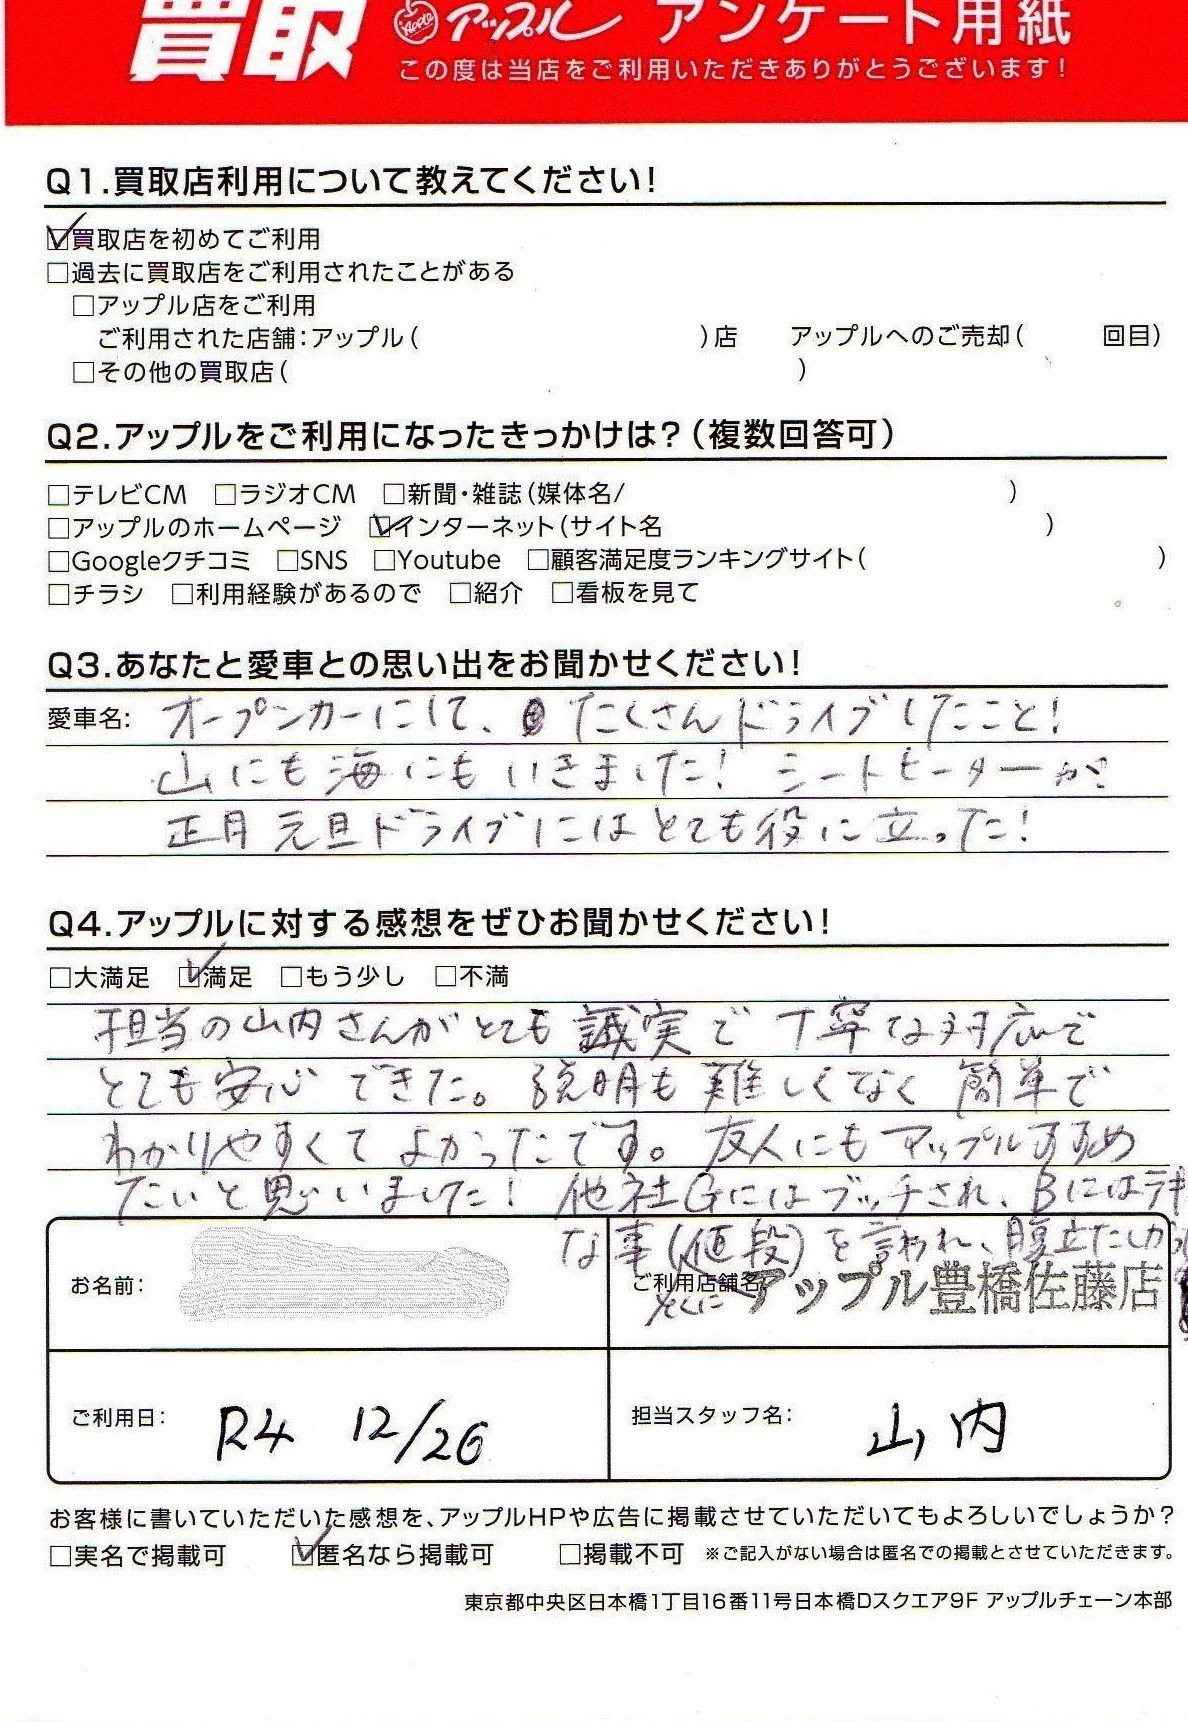 買取 Apple アップル アンケート用紙
この度は当店をご利用いただきありがとうございます!
Q1.買取店利用について教えてください!
☑買取店を初めてご利用
□過去に買取店をご利用されたことがある
□アップル店をご利用
ご利用された店舗:アップル( )店 アップルへのご売却( 回目)
□その他の買取店( )
Q2.アップルをご利用になったきっかけは?(複数回答可)
□テレビCM □ラジオCM □新聞・雑誌(媒体名/ )
□アップルのホームページ ☑インターネット(サイト名 )
□Googleクチコミ □SNS □Youtube □顧客満足度ランキングサイト( )
□チラシ □利用経験があるので □紹介 □看板を見て
Q3.あなたと愛車との思い出をお聞かせください!
愛車名: オープンカーにして、たくさんドライブしたこと!
山にも海にもいきました! シートヒーターが
正月元旦ドライブにはとても役に立った!
Q4.アップルに対する感想をぜひお聞かせください!
□大満足 ☑満足 □もう少し □不満
担当の山内さんがとても誠実で丁寧な対応で
とても安心できた。説明も難しくなく簡単で
わかりやすくてよかったです。友人にもアップルすすめ
たいと思いました! 他社GにはブッチされBにはテキ
な事(値段)を言われ、腹立たしか
お名前:
ご利用店舗名: アップル豊橋佐藤店
とくに
ご利用日: R4 12/26
担当スタッフ名: 山内
お客様に書いていただいた感想を、アップルHPや広告に掲載させていただいてもよろしいでしょうか?
□実名で掲載可 ☑匿名なら掲載可 □掲載不可 ※ご記入がない場合は匿名での掲載とさせていただきます。
東京都中央区日本橋1丁目16番11号日本橋Dスクエア9F アップルチェーン本部